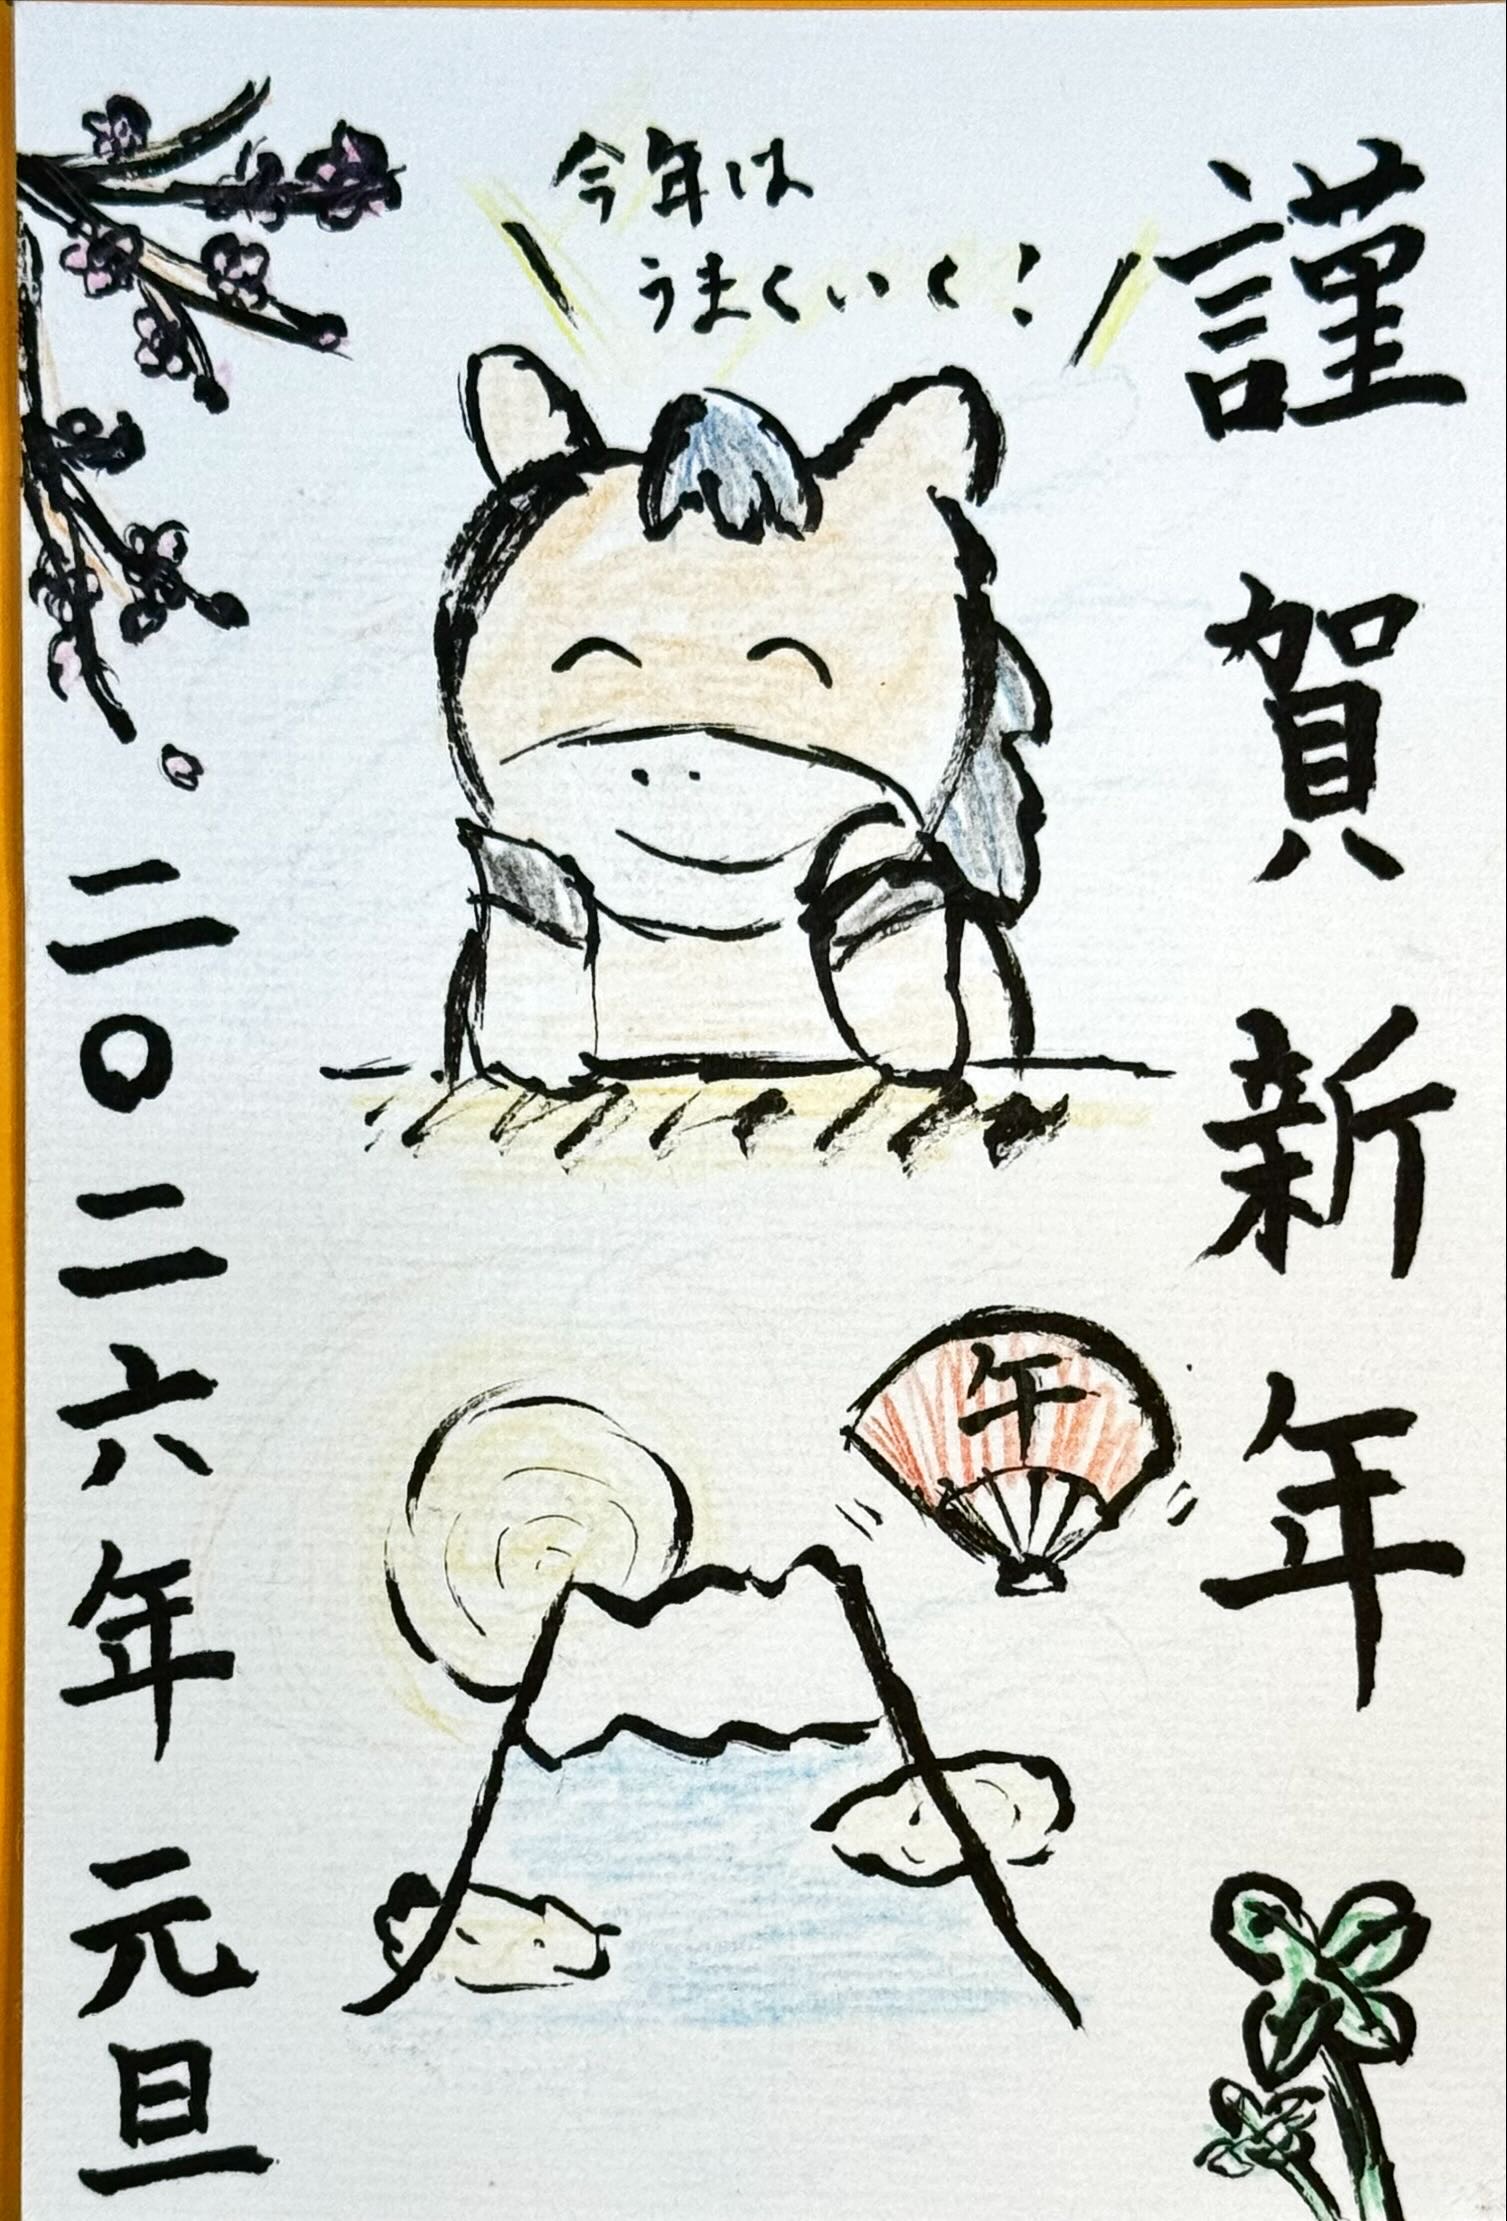 謹賀新年
今年は
うまくいく!
午
二〇二六年 元旦